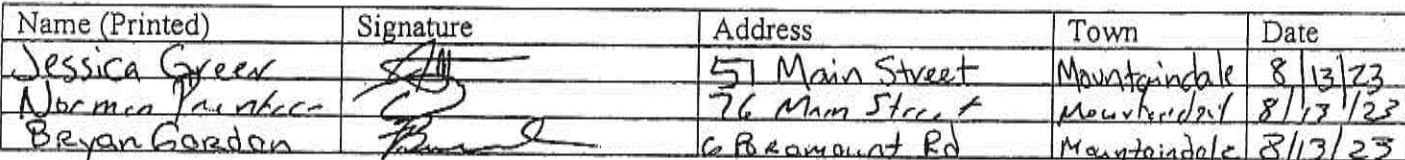 Name (Printed) Signature Address Town Date
Jessica Green 57 Main Street Mountaindale 8/13/23
Norman 76 Main Street Mountaindale 8/13/23
Bryan Gordon 6 Paramount Rd Mountaindale 8/13/23